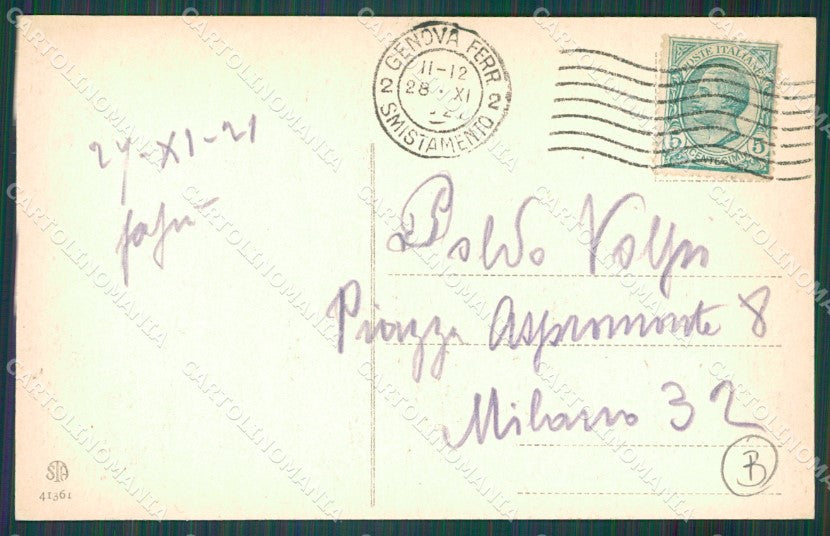 GENOVA FERR
11-12
28 · XI
2 2
SMISTAMENTO
POSTE ITALIANE
5 5
CENTESIMI
27-XI-21
Poldo Volpi
Piazza Aspromonte 8
Milano 32
B
STA
41361
CARTOLINOMANIA